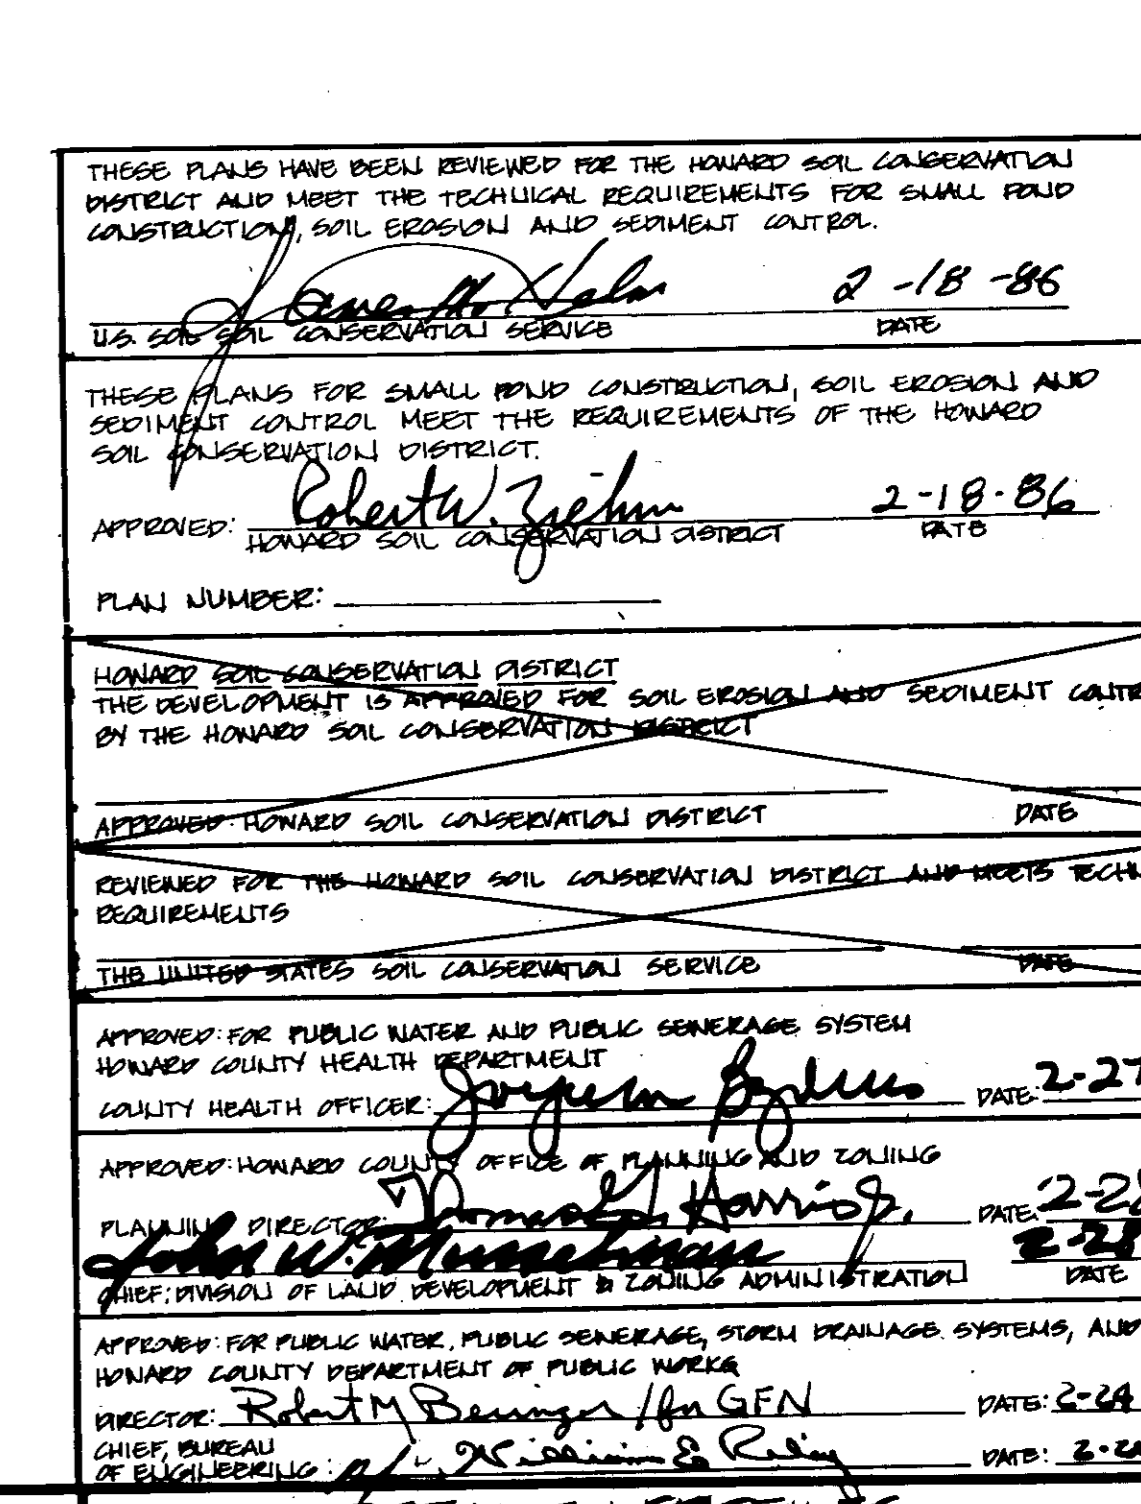 THESE PLANS HAVE BEEN REVIEWED FOR THE HOWARD SOIL CONSERVATION
DISTRICT AND MEET THE TECHNICAL REQUIREMENTS FOR SMALL POND
CONSTRUCTION, SOIL EROSION AND SEDIMENT CONTROL.
James M. Helm 2-18-86
U.S. SOIL SOIL CONSERVATION SERVICE DATE
THESE PLANS FOR SMALL POND CONSTRUCTION, SOIL EROSION AND
SEDIMENT CONTROL MEET THE REQUIREMENTS OF THE HOWARD
SOIL CONSERVATION DISTRICT.
APPROVED: Robert W. Ziehm 2-18-86
HOWARD SOIL CONSERVATION DISTRICT DATE
PLAN NUMBER:
HOWARD SOIL CONSERVATION DISTRICT
THE DEVELOPMENT IS APPROVED FOR SOIL EROSION AND SEDIMENT CONTR
BY THE HOWARD SOIL CONSERVATION DISTRICT
APPROVED: HOWARD SOIL CONSERVATION DISTRICT DATE
REVIEWED FOR THE HOWARD SOIL CONSERVATION DISTRICT AND MEETS TECHN
REQUIREMENTS
THE UNITED STATES SOIL CONSERVATION SERVICE DATE
APPROVED: FOR PUBLIC WATER AND PUBLIC SEWERAGE SYSTEM
HOWARD COUNTY HEALTH DEPARTMENT
COUNTY HEALTH OFFICER: DATE: 2-27
APPROVED: HOWARD COUNTY OFFICE OF PLANNING AND ZONING
PLANNING DIRECTOR: Thomas G. Harris Jr. DATE: 2-28
John W. Musselman 2-28
CHIEF; DIVISION OF LAND DEVELOPMENT & ZONING ADMINISTRATION DATE
APPROVED: FOR PUBLIC WATER, PUBLIC SEWERAGE, STORM DRAINAGE SYSTEMS, AND
HOWARD COUNTY DEPARTMENT OF PUBLIC WORKS
DIRECTOR: Robert M Beringer / for GFN DATE: 2-24
CHIEF, BUREAU
OF ENGINEERING: William E. Riley DATE: 2-2